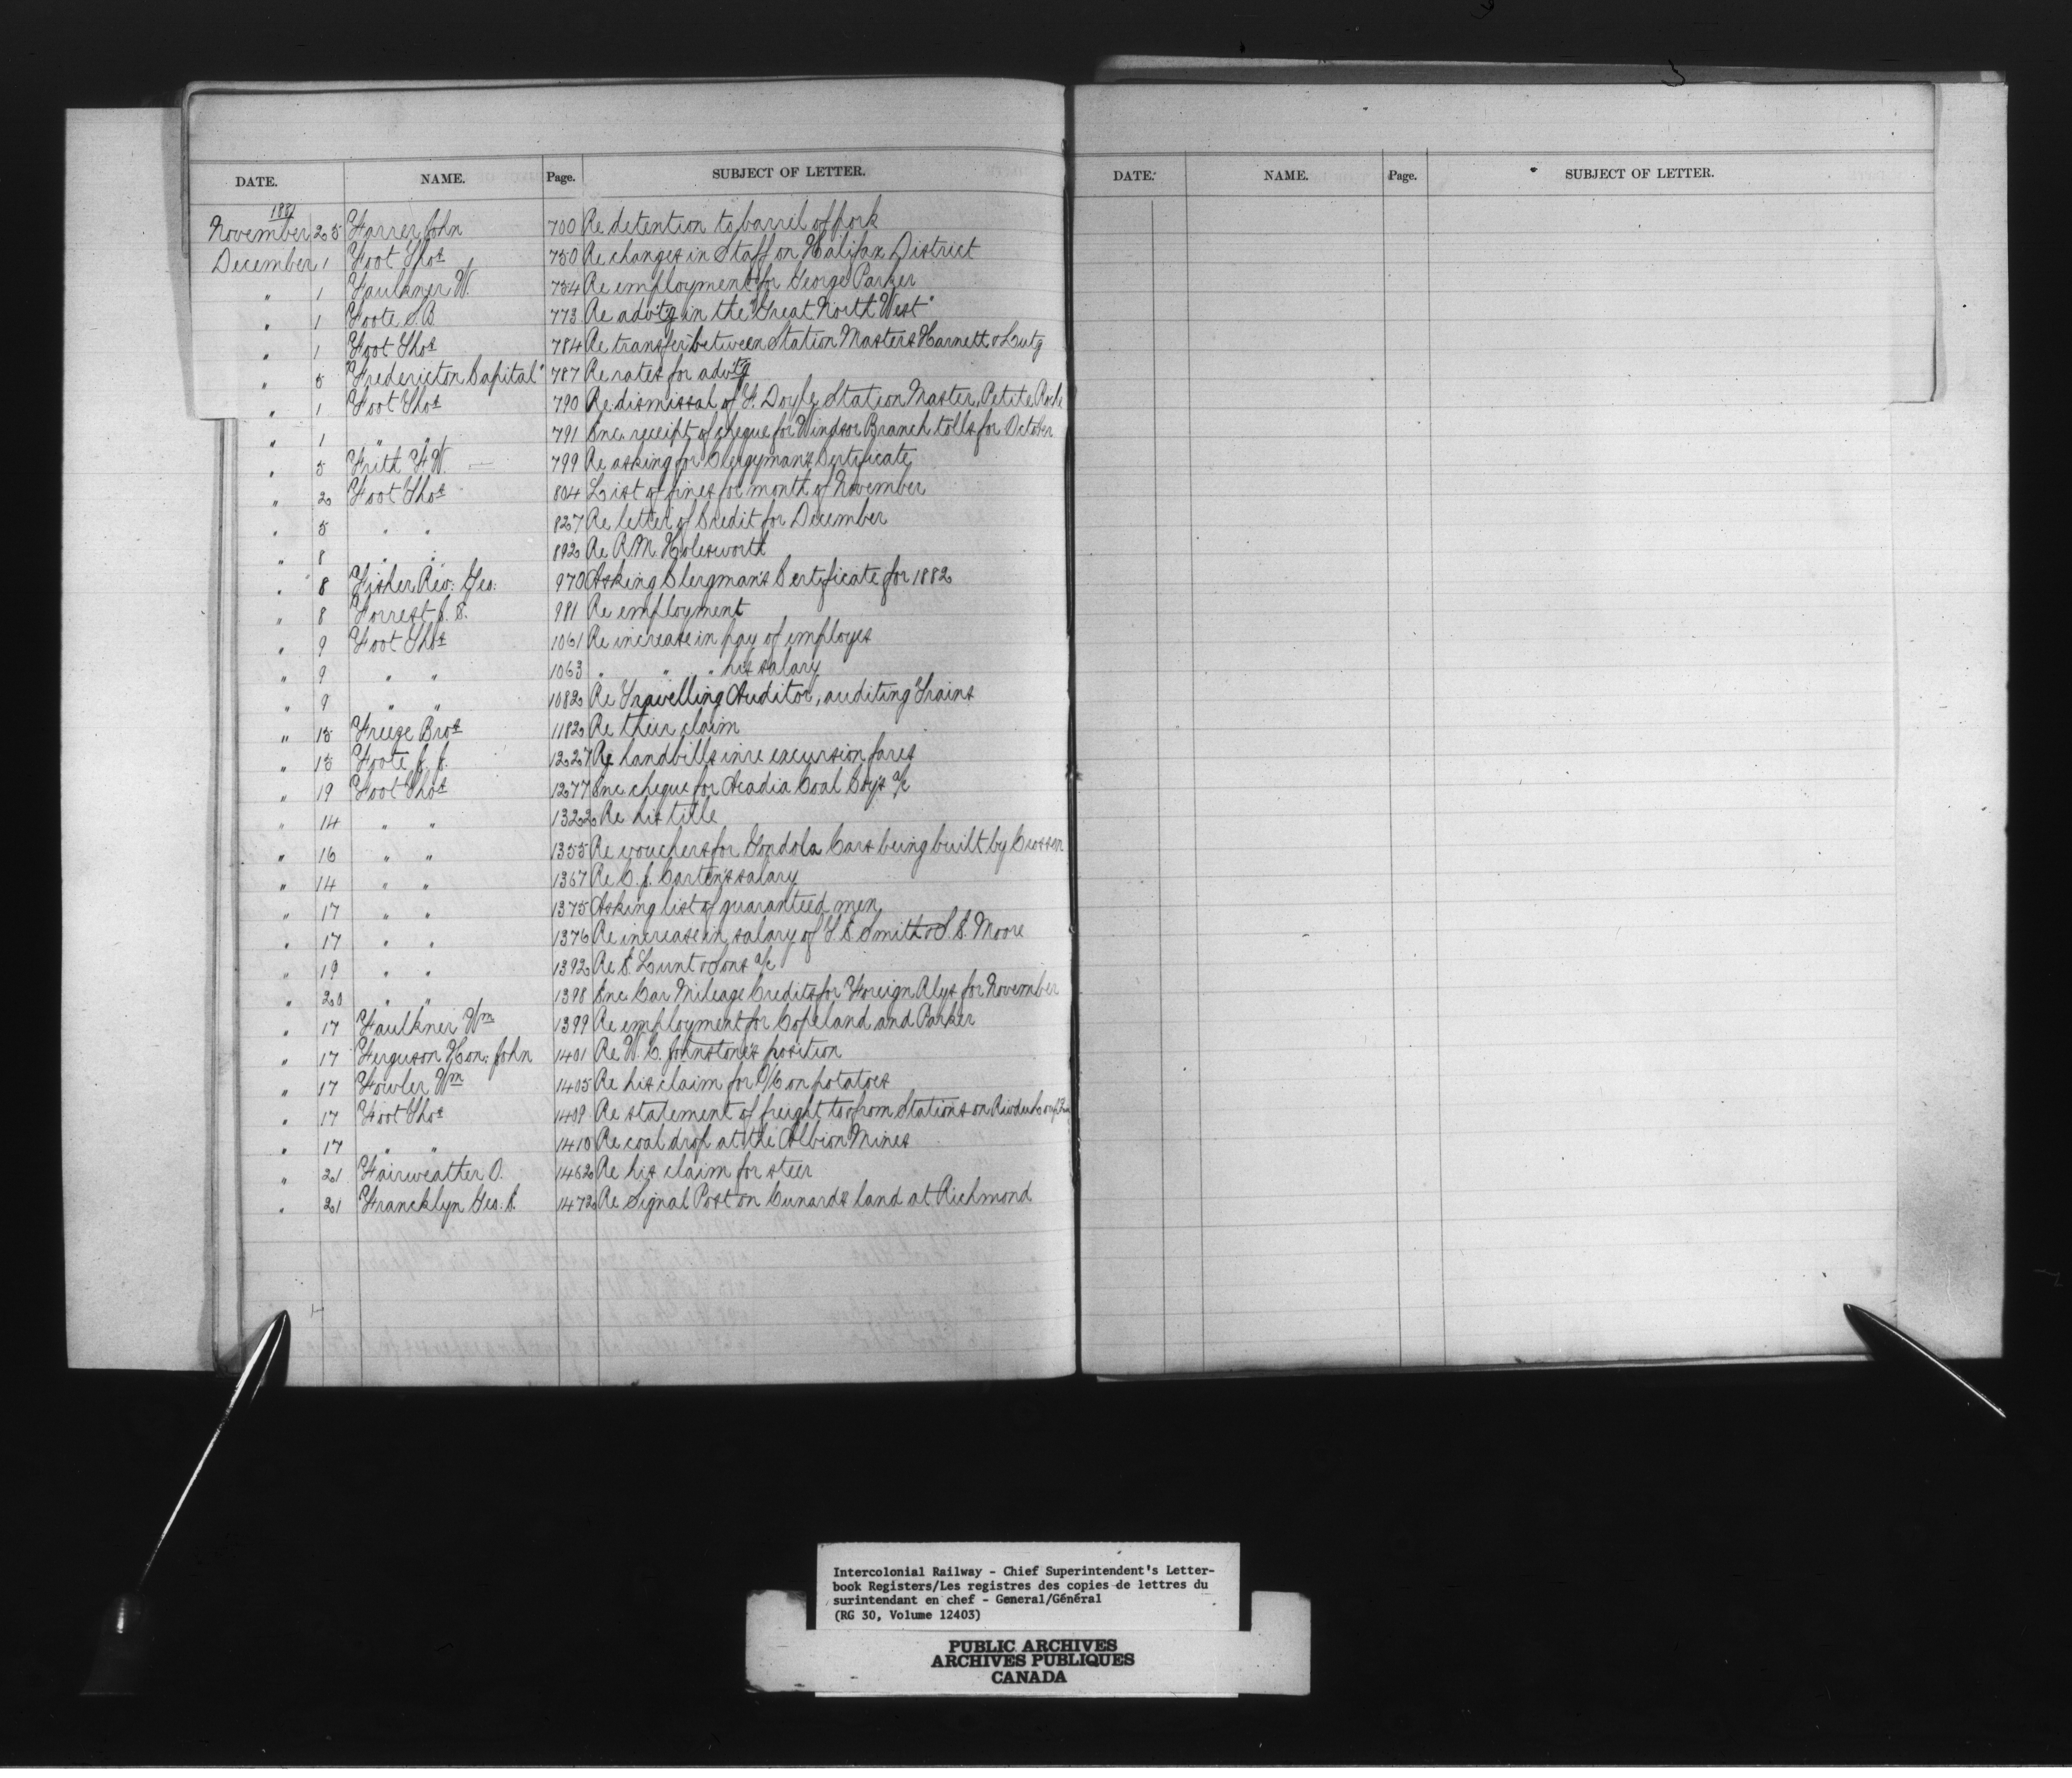 DATE. NAME. Page. SUBJECT OF LETTER.
1881
November 25 Farrer John 700 Re detention to barrel of pork
December 1 Foot Thos 750 Re changes in Staff on Halifax District
" 1 Faulkner W. 754 Re employment for George Parker
" 1 Foote S.B. 773 Re advtg in the "Great North West"
" 1 Foot Thos 784 Re transfer between Station Masters Harnett & Lutz
" 5 "Fredericton Capital" 787 Re rates for advtg
" 1 Foot Thos 790 Re dismissal of F. Doyle Station Master, Petite Roche
" 1 " " 791 Enc. receipt of cheque for Windsor Branch tolls for October
" 5 Frith F.W. 799 Re asking for Clergyman's Certificate
" 2 Foot Thos 804 List of fines for month of November
" 5 " " 827 Re letter of Credit for December
" 8 " " 892 Re R.M. Holesworth
" 8 Fisher Rev: Geo: 970 Asking Clergman's Certificate for 1882
" 8 Forrest J. S. 981 Re employment
" 9 Foot Thos 1061 Re increase in pay of employes
" 9 " " 1063 " " " his salary
" 9 " " 1082 Re Travelling Auditor, auditing Trains
" 15 Freeze Bros 1182 Re their claim
" 15 Foote J. J. 1227 Re handbills in re excursion fares
" 19 Foot Thos 1277 Enc cheque for Acadia Coal Coy's a/c
" 14 " " 1322 Re his title
" 16 " " 1355 Re vouchers for Gondola Cars being built by Crossen
" 14 " " 1367 Re C. J. Carter's salary
" 17 " " 1375 Asking list of guaranteed men
" 17 " " 1376 Re increase in salary of Smith & Moore
" 19 " " 1392 Re E. Lunt & Sons a/c
" 20 " " 1398 Enc Car Mileage Credits for Foreign Rlys for November
" 17 Faulkner Wm 1399 Re employment for Copeland and Parker
" 17 Ferguson Hon: John 1401 Re W. C. Johnstone's position
" 17 Fowler Wm 1405 Re his claim for O/C on potatoes
" 17 Foot Thos 1409 Re statement of freight to & from Stations on Riviere du Loup
" 17 " " 1410 Re coal drop at the Albion Mines
" 21 Fairweather O. 1462 Re his claim for steer
" 21 Francklyn Geo. E. 1472 Re Signal Post on Cunards land at Richmond
DATE. NAME. Page. SUBJECT OF LETTER.
Intercolonial Railway - Chief Superintendent's Letter-
book Registers/Les registres des copies de lettres du
surintendant en chef - General/Général
(RG 30, Volume 12403)
PUBLIC ARCHIVES
ARCHIVES PUBLIQUES
CANADA